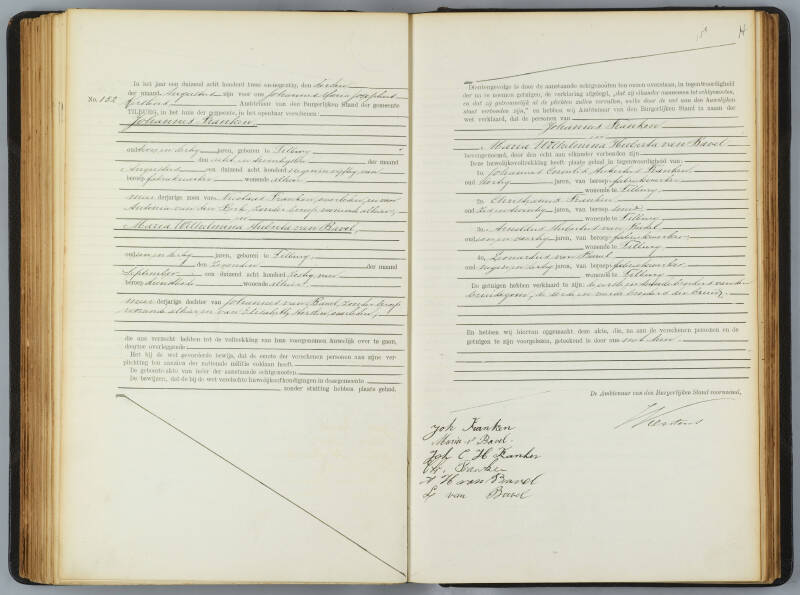 In het jaar een duizend acht honderd twee en negentig, den
der maand Augustus zijn voor ons Johannes Maria Josephus
No. 152 Kerstens Ambtenaar van den Burgerlijken Stand der gemeente
TILBURG, in het huis der gemeente, in het openbaar verschenen:
Johannes Franken
oud twee en dertig jaren, geboren te Tilburg
den acht en twintigsten der maand
Augustus een duizend acht honderd negen en vijftig, van
beroep fabriekwerker wonende alhier
meerderjarige zoon van Nicolaas Franken, overleden, en van
Antonia van den Berk, zonder beroep, wonende alhier,
en
Maria Wilhelmina Huberta van Bavel,
oud een en dertig jaren, geboren te Tilburg
den der maand
September een duizend acht honderd zestig, van
beroep dienstbode wonende alhier
meerderjarige dochter van Johannes van Bavel, zonder beroep
wonende alhier, en van Elisabeth overleden,
die ons verzocht hebben tot de voltrekking van hun voorgenomen huwelijk over te gaan,
daartoe overleggende:
Het bij de wet gevorderde bewijs, dat de eerste der verschenen personen aan zijne ver-
plichting ten aanzien der nationale militie voldaan heeft.
De geboorte-akte van ieder der aanstaande echtgenooten.
De bewijzen, dat de bij de wet vereischte huwelijksafkondigingen in deze gemeente
zonder stuiting hebben plaats gehad.
14
Dientengevolge is door de aanstaande echtgenooten ten onzen overstaan, in tegenwoordigheid
der na te noemen getuigen, de verklaring afgelegd, „dat zij elkander aannemen tot echtgenooten,
en dat zij getrouwelijk al de plichten zullen vervullen, welke door de wet aan den huwelijken
staat verbonden zijn," en hebben wij Ambtenaar van den Burgerlijken Stand in naam der
wet verklaard, dat de personen van
Johannes Franken
en
Maria Wilhelmina Huberta van Bavel
bovengenoemd, door den echt aan elkander verbonden zijn.
Deze huwelijksvoltrekking heeft plaats gehad in tegenwoordigheid van:
1o. Johannes Cornelis Hubertus Franken,
oud dertig jaren, van beroep fabriekwerker
wonende te Tilburg
2o. Christianus Franken
oud jaren, van beroep smid
wonende te Tilburg
3o. Arnoldus Hubertus van Bavel
oud jaren, van beroep fabriekwerker
wonende te Tilburg
4o. Leonardus van Bavel
oud jaren, van beroep fabriekwerker
wonende te Tilburg
De getuigen hebben verklaard te zijn: de eerste en tweede broeders van den
bruidegom, de derde en vierde broeders der bruid,
En hebben wij hiervan opgemaakt deze akte, die, na aan de verschenen personen en de
getuigen te zijn voorgelezen, geteekend is door ons met hen.
De Ambtenaar van den Burgerlijken Stand voornoemd,
Kerstens
Joh Franken
Maria v Bavel.
Joh C H Franken
Chr. Franken
A H van Bavel
L van Bavel